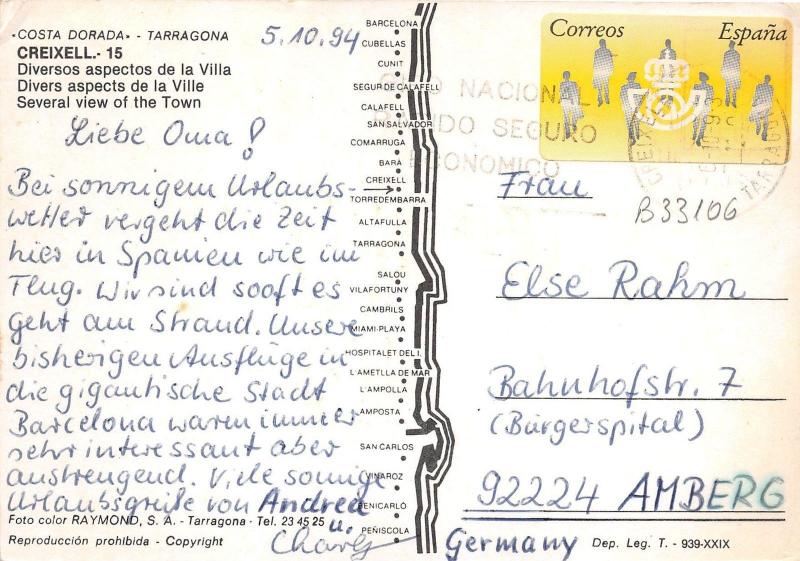 «COSTA DORADA» - TARRAGONA
CREIXELL.- 15
Diversos aspectos de la Villa
Divers aspects de la Ville
Several view of the Town
5.10.94
Liebe Oma!
Bei sonnigem Urlaubs-
wetter vergeht die Zeit
hier in Spanien wie im
Flug. Wir sind sooft es
geht am Strand. Unsere
bisherigen Ausflüge in
die gigantische Stadt
Barcelona waren immer
sehr interessant aber
anstrengend. Viele sonnige
Urlaubsgrüße von Andrea
u.
Foto color RAYMOND, S. A. - Tarragona - Tel. 23 45 25
Reproducción prohibida - Copyright
BARCELONA
CUBELLAS
CUNIT
SEGUR DE CALAFELL
CALAFELL
SAN SALVADOR
COMARRUGA
BARA
CREIXELL
TORREDEMBARRA
ALTAFULLA
TARRAGONA
SALOU
VILAFORTUNY
CAMBRILS
MIAMI-PLAYA
HOSPITALET DEL I.
L'AMETLLA DE MAR
L'AMPOLLA
AMPOSTA
SAN CARLOS
VINAROZ
BENICARLO
PEÑISCOLA
Correos España
NACIONAL
SEGURO
ECONOMICO
CREIXELL
TARRAGONA
B33106
Frau
Else Rahm
Bahnhofstr. 7
(Bürgerspital)
92224 AMBERG
Germany
Dep. Leg. T. - 939-XXIX